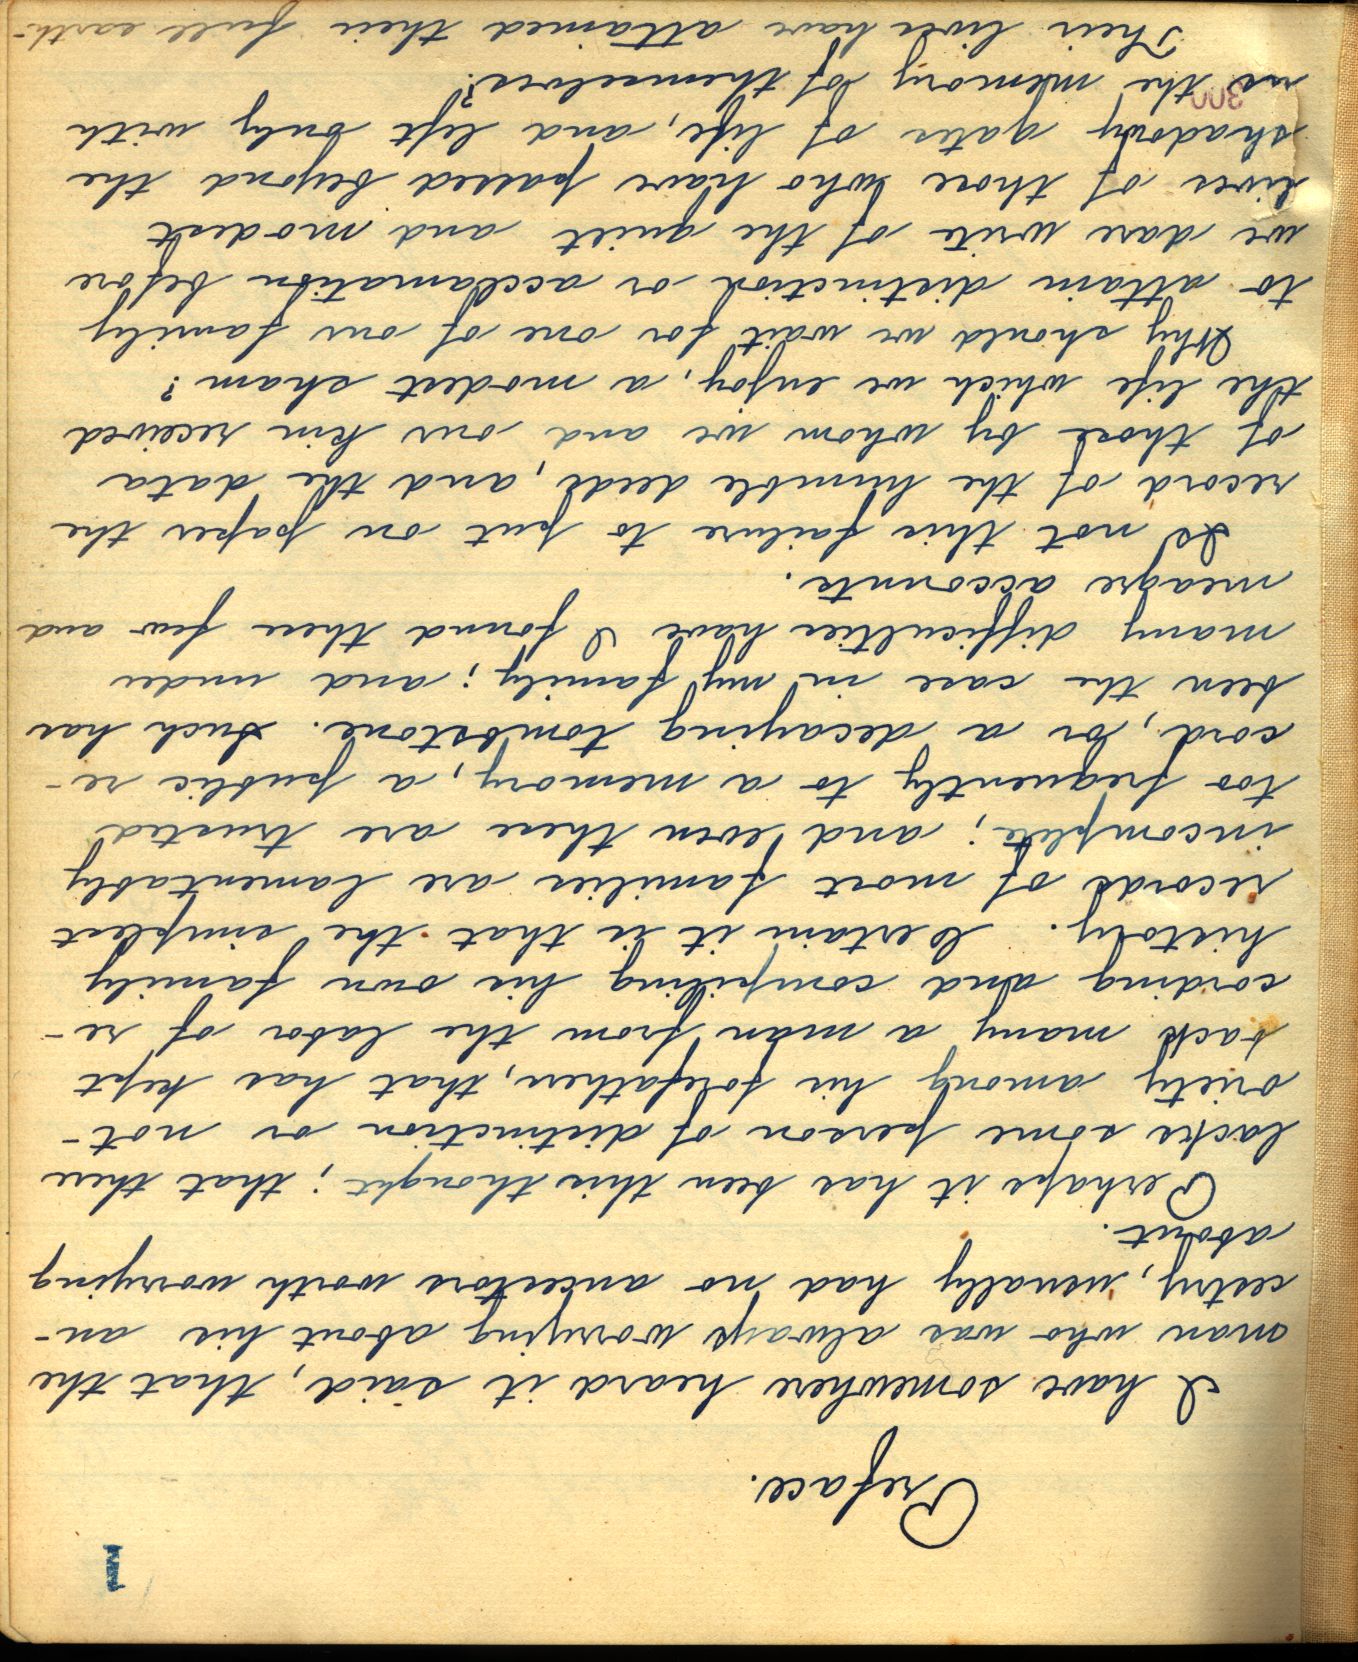 1
Preface.
I have somewhere heard it said, that the
man who was always worrying about his an-
cestry, usually had no ancestors worth worrying
about.
Perhaps it has been this thought; that there
lacks some person of distinction or not-
oriety among his forefathers, that has kept
back many a man from the labor of re-
cording and compiling his own family
history. Certain it is that the simplest
records of most families are lamentably
incomplete; and even these are trusted
too frequently to a memory, a public re-
cord, or a decaying tombstone. Such has
been the case in my family; and under
many difficulties have I found these few and
meagre accounts.
Is not this failure to put on paper the
record of the humble deeds, and the data
of those by whom we and our kin received
the life which we enjoy, a modest sham?
Why should we wait for one of our family
to attain distinction or acclamation before
we dare write of the quiet and modest
lives of those who have passed beyond the
shadowy gates of life, and left only with
us the memory of themselves?
Their lives have attained their full earth-
300